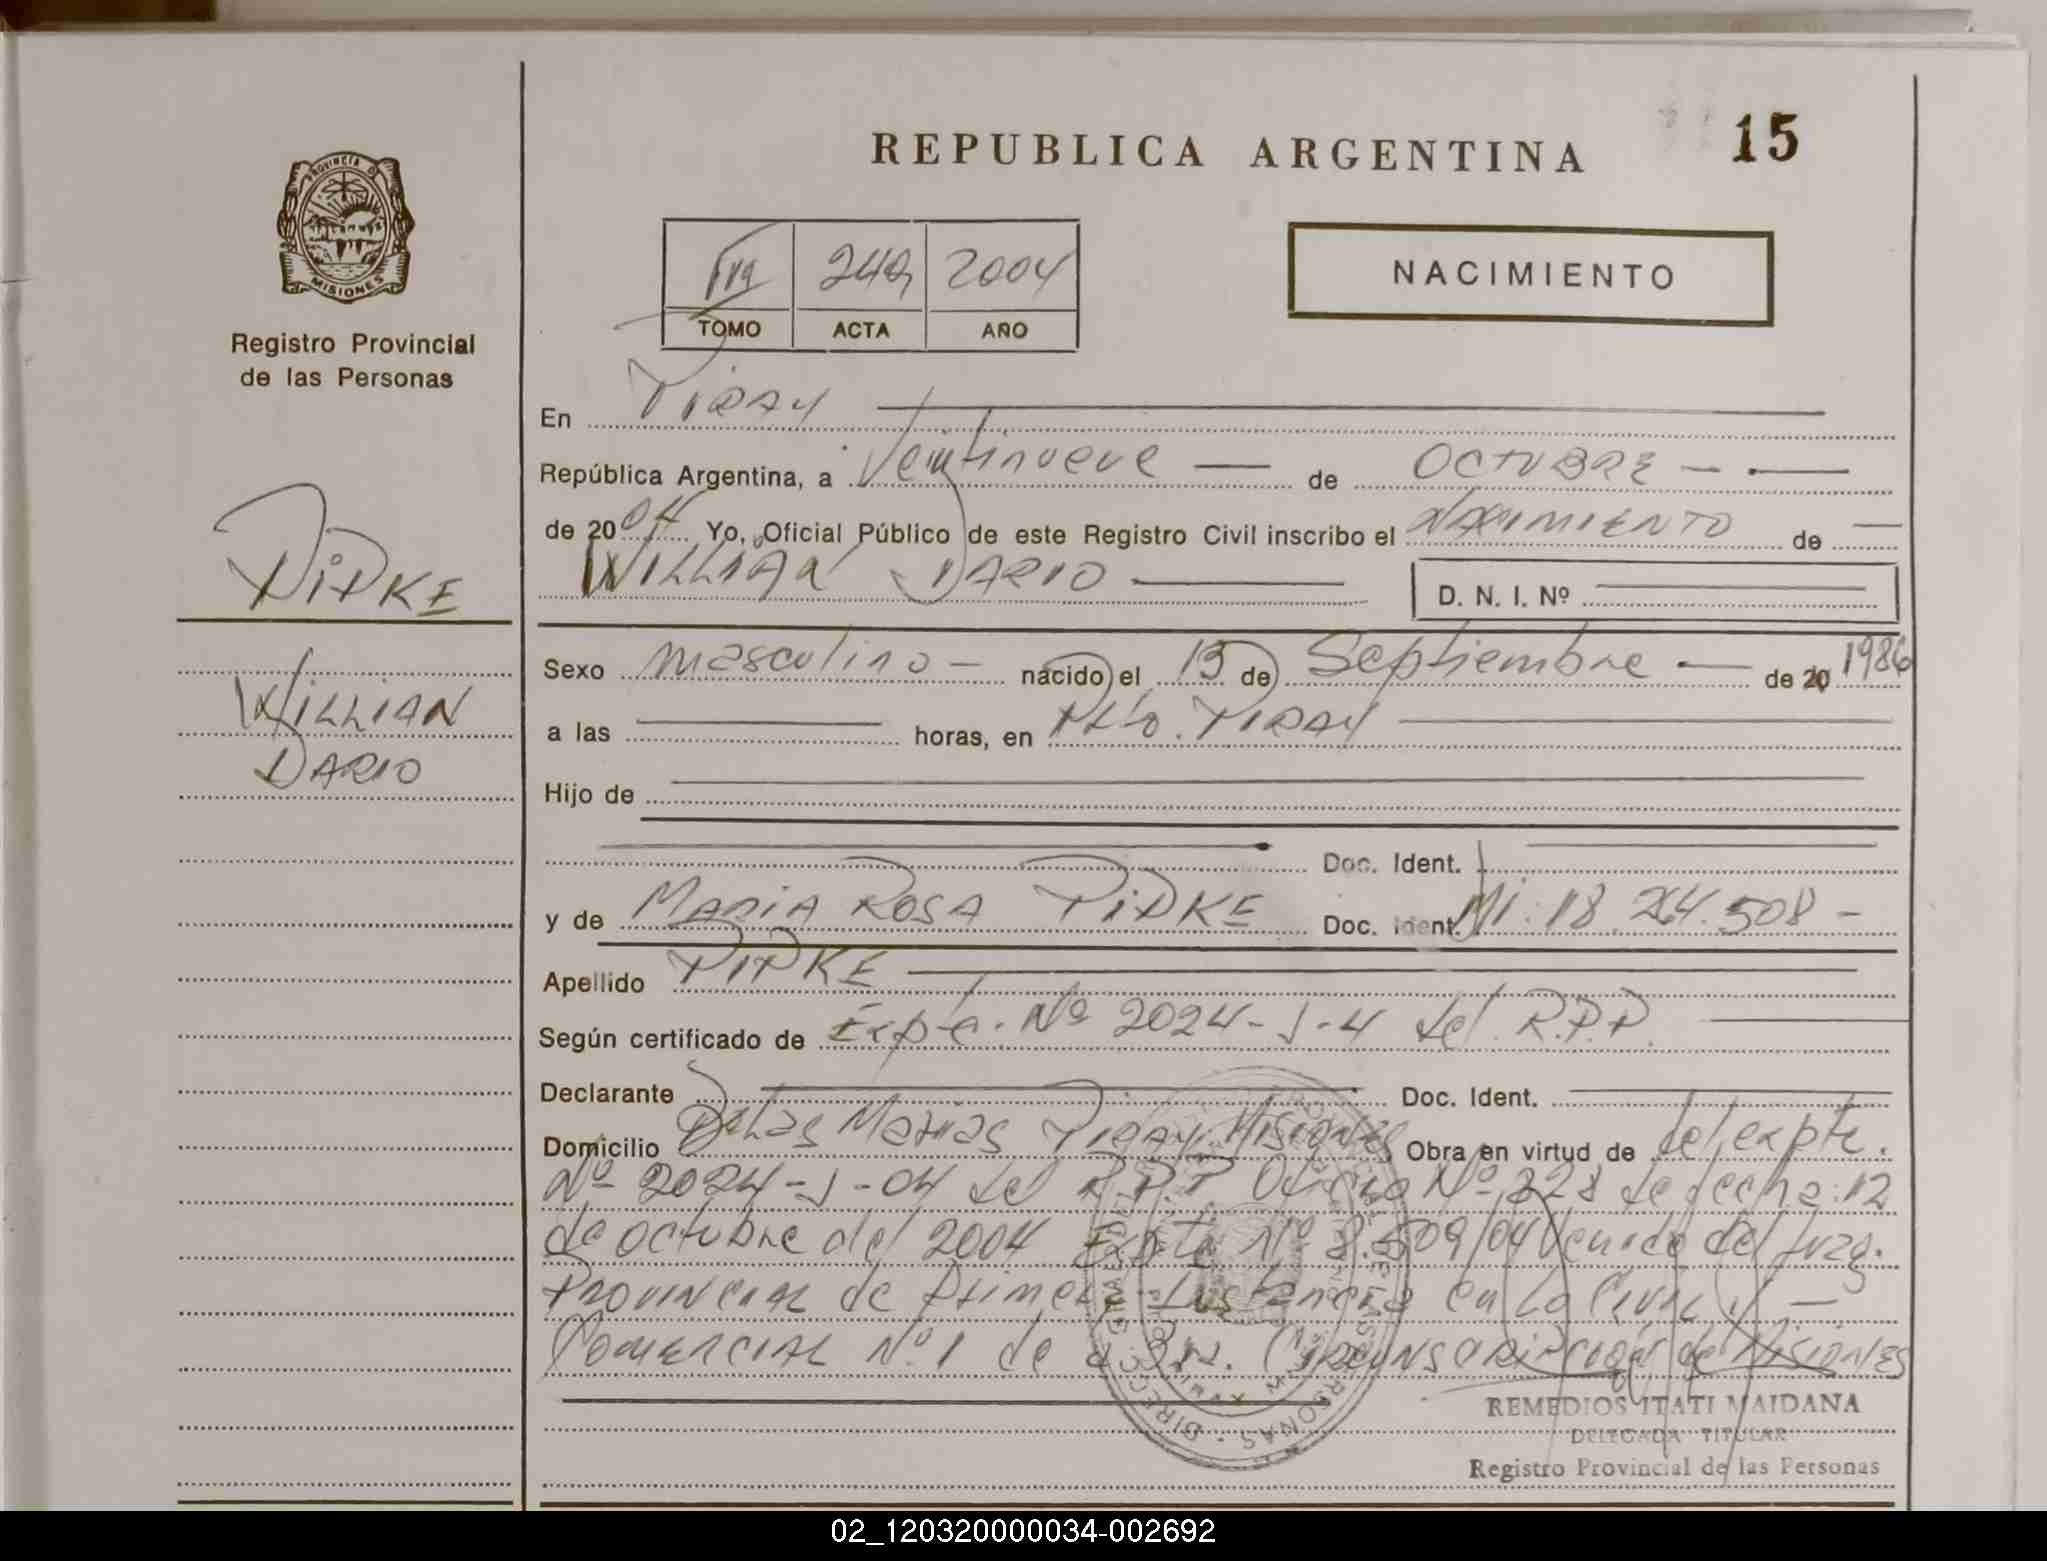 REPUBLICA ARGENTINA 15
PROVINCIA DE
MISIONES
Registro Provincial
de las Personas
PIPKE
WILLIAN
DARIO
2004
TOMO ACTA AÑO
NACIMIENTO
En PIRAY
República Argentina, a Veintinueve de OCTUBRE
de 2004 Yo, Oficial Público de este Registro Civil inscribo el NACIMIENTO de
WILLIAN DARIO D. N. I. Nº
Sexo masculino nacido el 13 de Septiembre de 20 1986
a las horas, en Pto. PIRAY
Hijo de
Doc. Ident.
y de MARIA ROSA PIPKE Doc. Ident. MI: 18.264.508
Apellido PIPKE
Según certificado de Expte. Nº 2024-J-4 del R.P.P.
Declarante Doc. Ident.
Domicilio Delas Marias PIRAY. Misiones Obra en virtud de del expte.
Nº 2024-J-04 del R.P.P Oficio Nº 828 de fecha: 12
de octubre del 2004 Expte Nº 8.509/04 Venido del Juzg.
PROVINCIAL de Primera Instancia en Lo Civil y
COMERCIAL Nº 1 de la Circunscripción de Misiones
REMEDIOS ITATI MAIDANA
DELEGADA TITULAR
Registro Provincial de las Personas
02_120320000034-002692